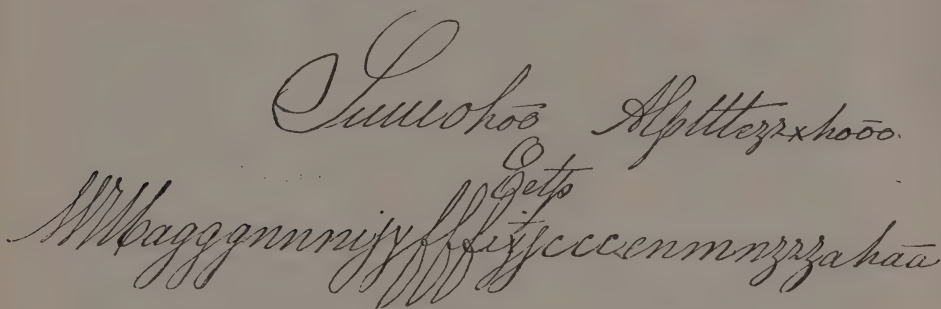 Suuuohōō Alpltttezzxhōōō.
Eetp
WMagggnnnijyffffixjjcccenmnzzzahāā